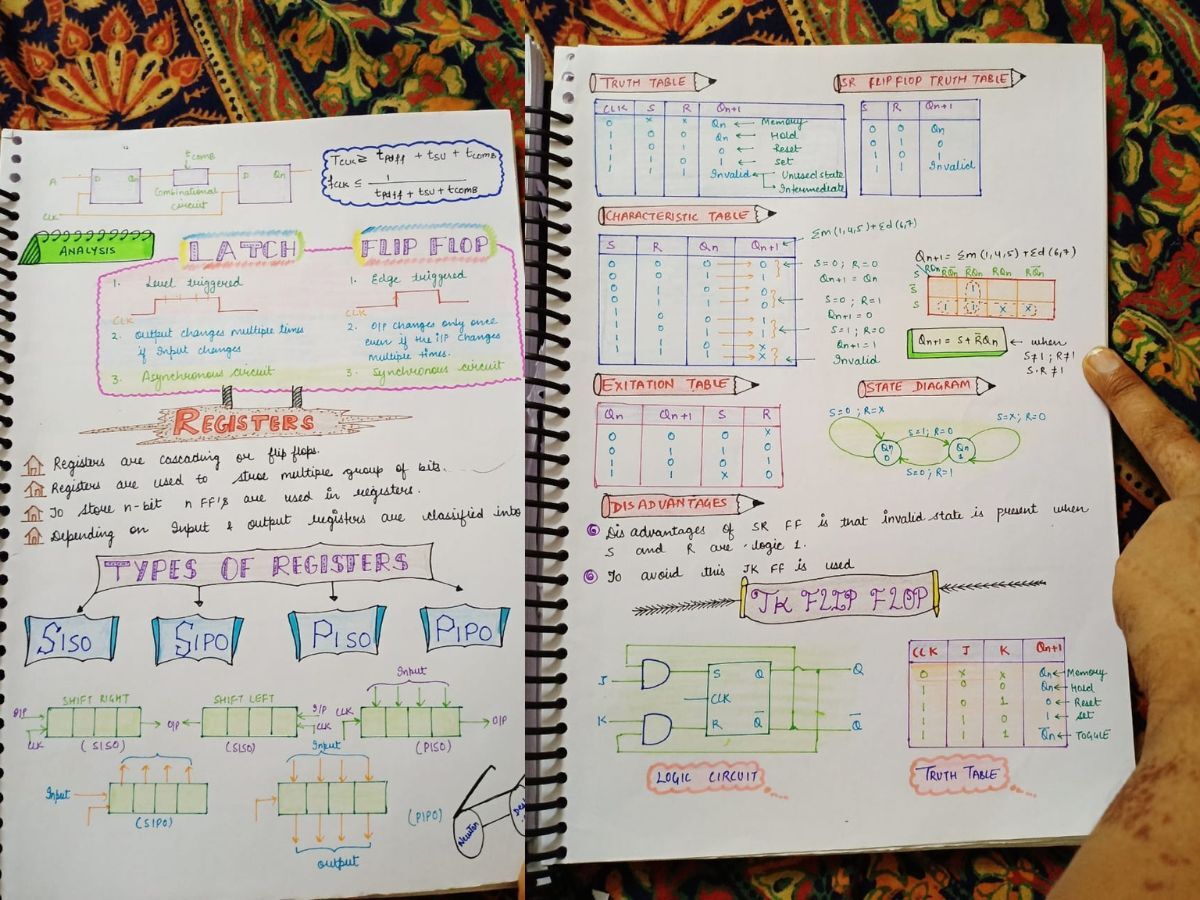 tcomb
A
D Qn
D Qn
Combinational
circuit
CLK
TCLK ≥ tpdff + tSU + tCOMB
fCLK ≤ 1 / tpdff + tSU + tCOMB
ANALYSIS
LATCH
FLIP FLOP
1. Level triggered
CLK
2. Output changes multiple times
if Input changes
3. Asynchronous circuit
1. Edge triggered
CLK
2. O/P changes only once
even if the i/P changes
multiple times.
3. Synchronous circuit
REGISTERS
Registers are cascading or flip flops.
Registers are used to store multiple group of bits.
To store n-bit n FF's are used in registers.
Depending on Input & output registers are classified into
TYPES OF REGISTERS
SISO SIPO PISO PIPO
SHIFT RIGHT
CLK
O/P
(SISO)
SHIFT LEFT
O/P
I/P
CLK
(SISO)
Input
CLK
O/P
(PISO)
Input
(SIPO)
Input
output
(PIPO)
Newton
TRUTH TABLE
CLK S R Qn+1
0 x x Qn ← Memory
1 0 0 Qn ← Hold
1 0 1 0 ← Reset
1 1 0 1 ← Set
1 1 1 Invalid Unused state
Intermediate
SR FLIP FLOP TRUTH TABLE
S R Qn+1
0 0 Qn
0 1 0
1 0 1
1 1 Invalid
CHARACTERISTIC TABLE
Σm(1,4,5) + Σd(6,7)
S R Qn Qn+1
0 0 0 → 0
0 0 1 → 1
0 1 0 → 0
0 1 1 → 0
1 0 0 → 1
1 0 1 → 1
1 1 0 → x
1 1 1 → x
S=0; R=0
Qn+1 = Qn
S=0; R=1
Qn+1 = 0
S=1; R=0
Qn+1 = 1
Invalid
Qn+1 = Σm(1,4,5) + Σd(6,7)
S RQn R̄Q̄n R̄Qn RQn RQ̄n
S̄ 1
S 1 1 x x
Qn+1 = S + R̄Qn ← when
S≠1; R≠1
S.R≠1
EXITATION TABLE
Qn Qn+1 S R
0 0 0 x
0 1 1 0
1 0 0 1
1 1 x 0
STATE DIAGRAM
S=0; R=x
S=1; R=0
S=x; R=0
Qn
0
Qn
1
S=0; R=1
DISADVANTAGES
Dis advantages of SR FF is that invalid state is present when
S and R are logic 1.
To avoid this JK FF is used
JK FLIP FLOP
J
K
S Q
CLK
R Q̄
Q
Q̄
LOGIC CIRCUIT
CLK J K Qn+1
0 x x Qn ← Memory
1 0 0 Qn ← Hold
1 0 1 0 ← Reset
1 1 0 1 ← Set
1 1 1 Q̄n ← TOGGLE
TRUTH TABLE